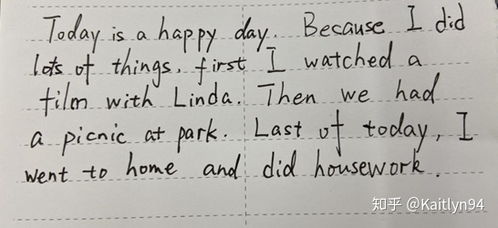 Today is a happy day. Because I did
lots of things. first I watched a
film with Linda. Then we had
a picnic at park. Last of today, I
went to home and did housework.
知乎 @Kaitlyn94